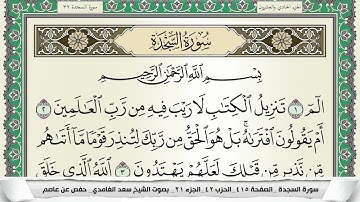 الجزء الحادي والعشرون
سورة السجدة ٣٢
سُورَةُ السَّجْدَةِ
بِسْمِ اللَّهِ الرَّحْمَٰنِ الرَّحِيمِ
الٓمٓ ١ تَنزِيلُ الْكِتَابِ لَا رَيْبَ فِيهِ مِن رَّبِّ الْعَالَمِينَ ٢
أَمْ يَقُولُونَ افْتَرَاهُ ۚ بَلْ هُوَ الْحَقُّ مِن رَّبِّكَ لِتُنذِرَ قَوْمًا مَّا أَتَاهُم
مِّن نَّذِيرٍ مِّن قَبْلِكَ لَعَلَّهُمْ يَهْتَدُونَ ٣ اللَّهُ الَّذِي خَلَقَ
سورة السجدة _الصفحة ٤١٥_الحزب ٤٢_الجزء ٢١_ بصوت الشيخ سعد الغامدي_ حفص عن عاصم